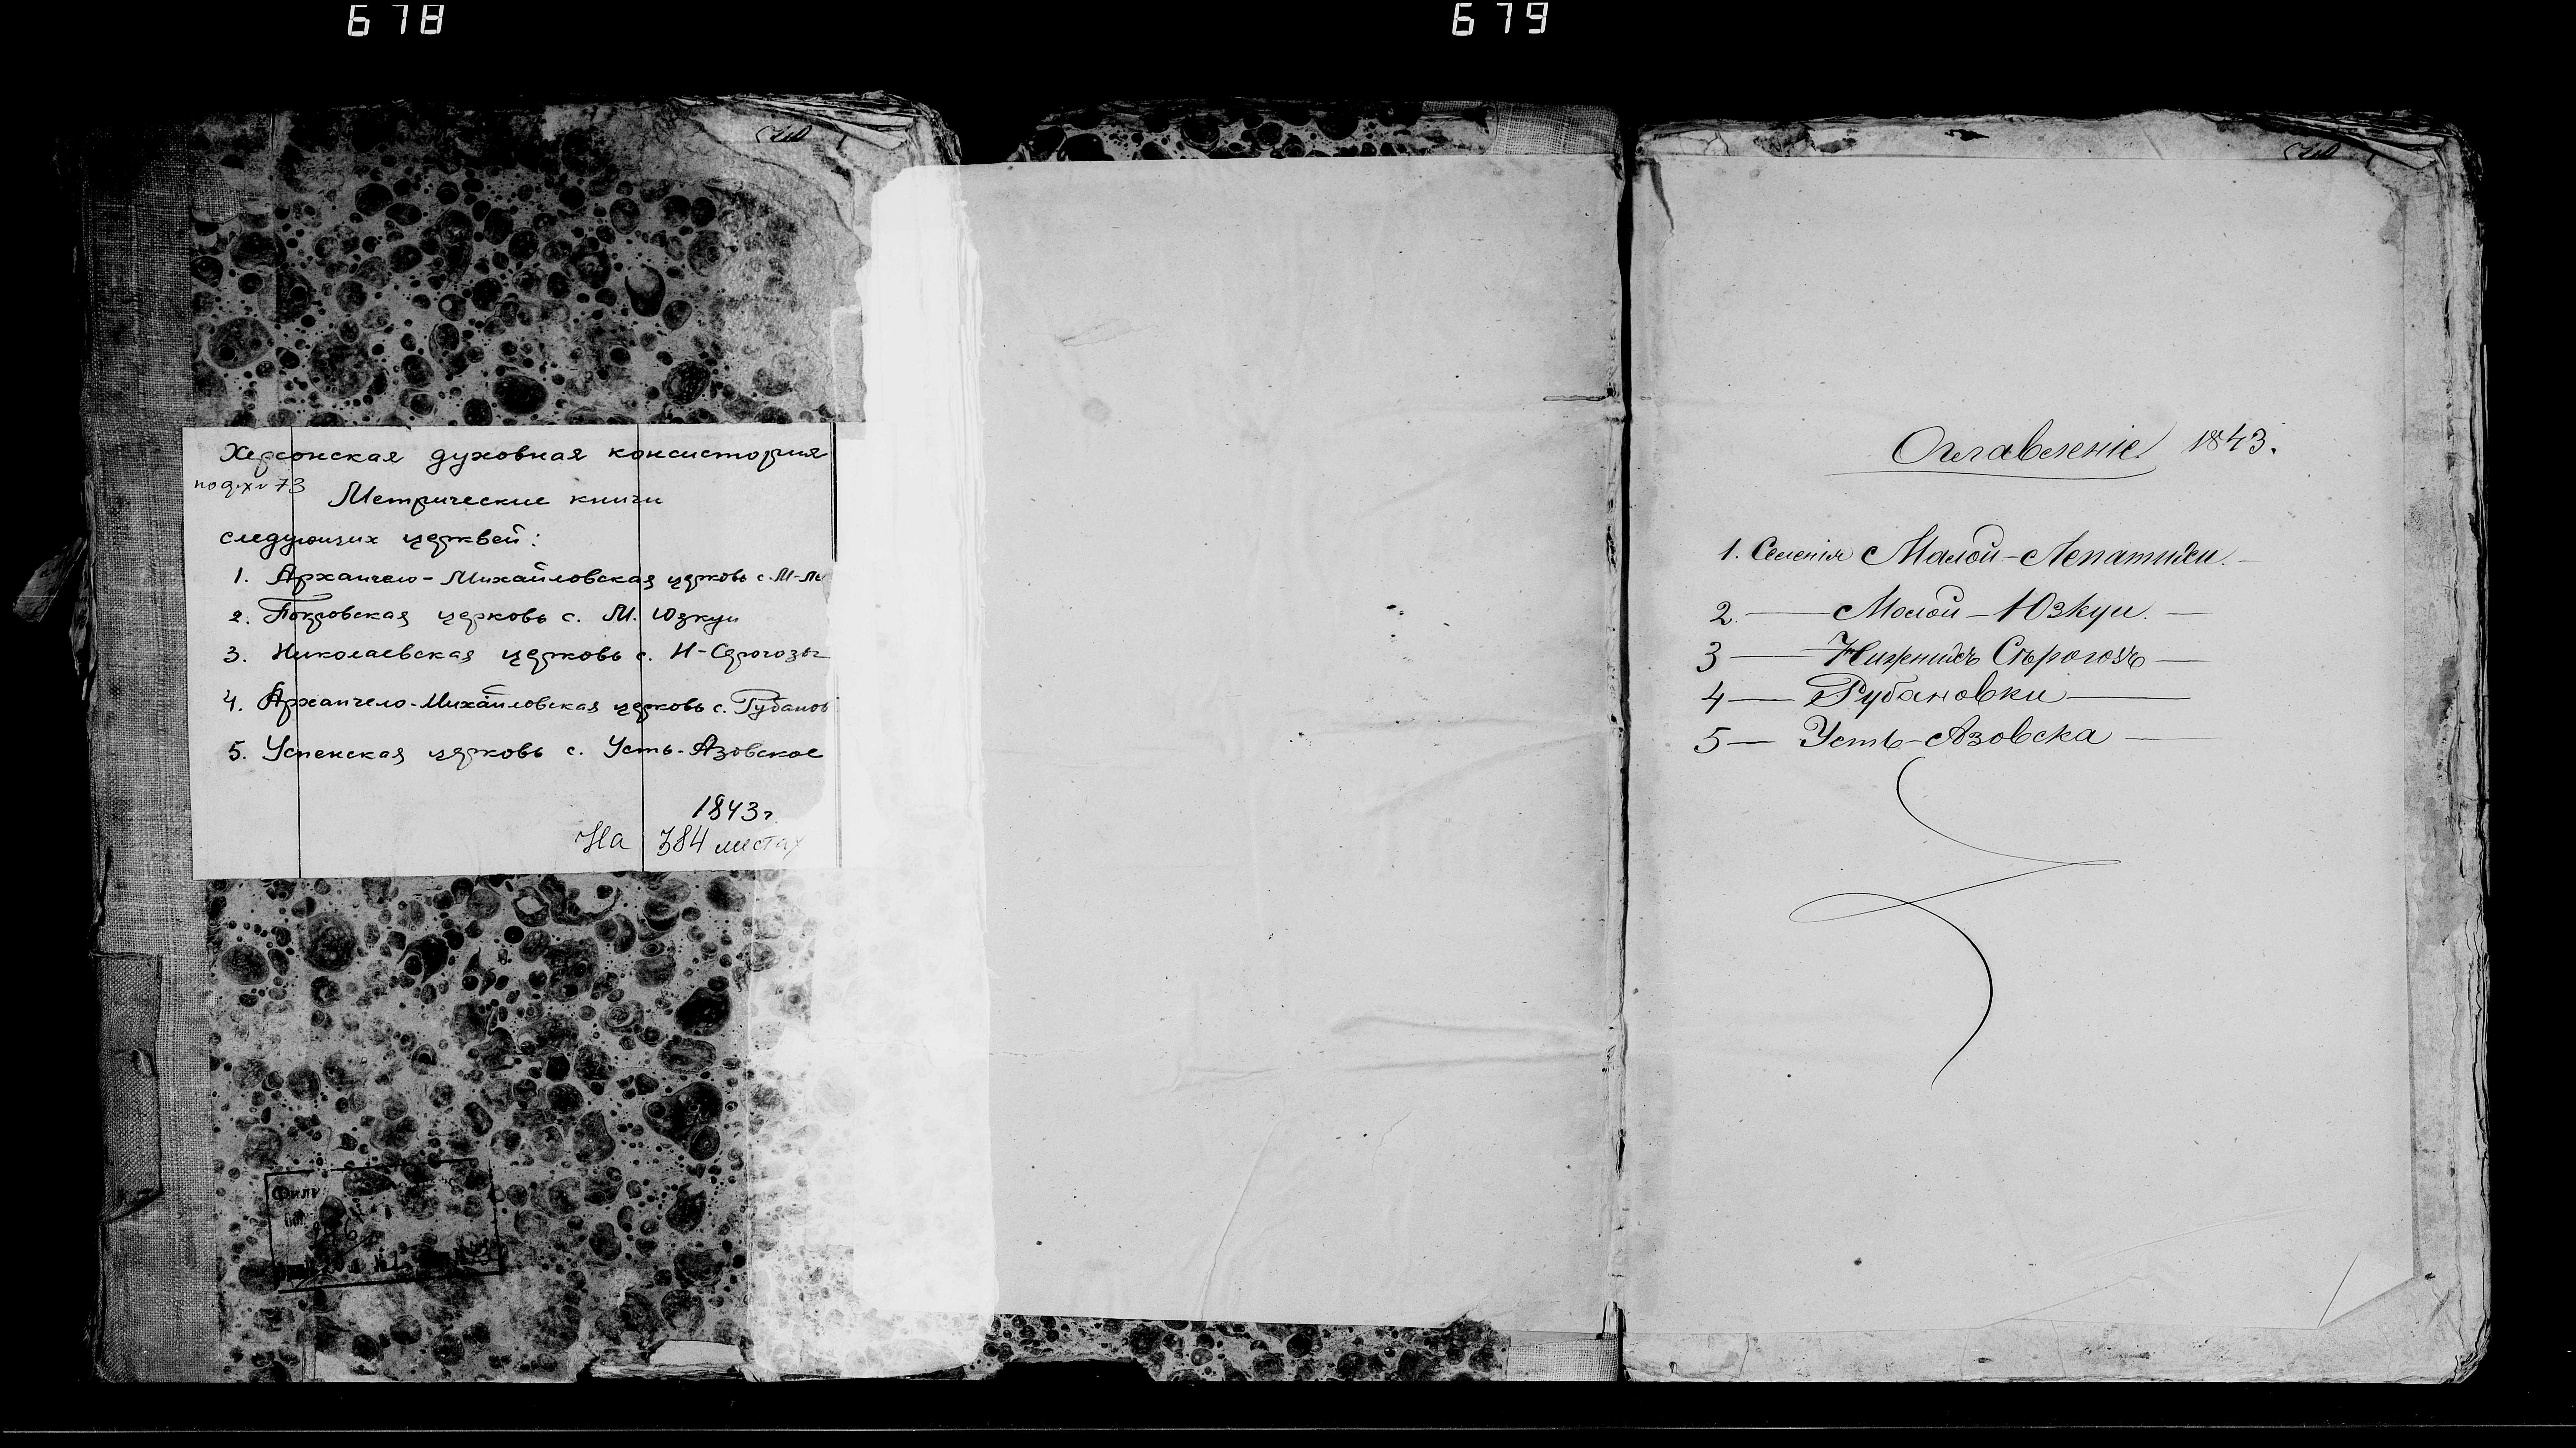 678
679
Херсонская духовная консистория
Метрические книги
следующих церквей:
1. Архангело-Михайловская церковь с. М-Ле
2. Покровская церковь с. М. Юзкуи
3. Николаевская церковь с. Н-Серогозы
4. Архангело-Михайловская церковь с. Рубанов
5. Успенская церковь с. Усть-Азовское
1843г
На 384 листах
Оглавленіе 1843.
1. Селенія Малой-Лепатихи. —
2. — Малой-Юзкуи. —
3 — Нижнихъ Сѣрогозъ —
4 — Рубановки —
5 — Усть-Азовска —